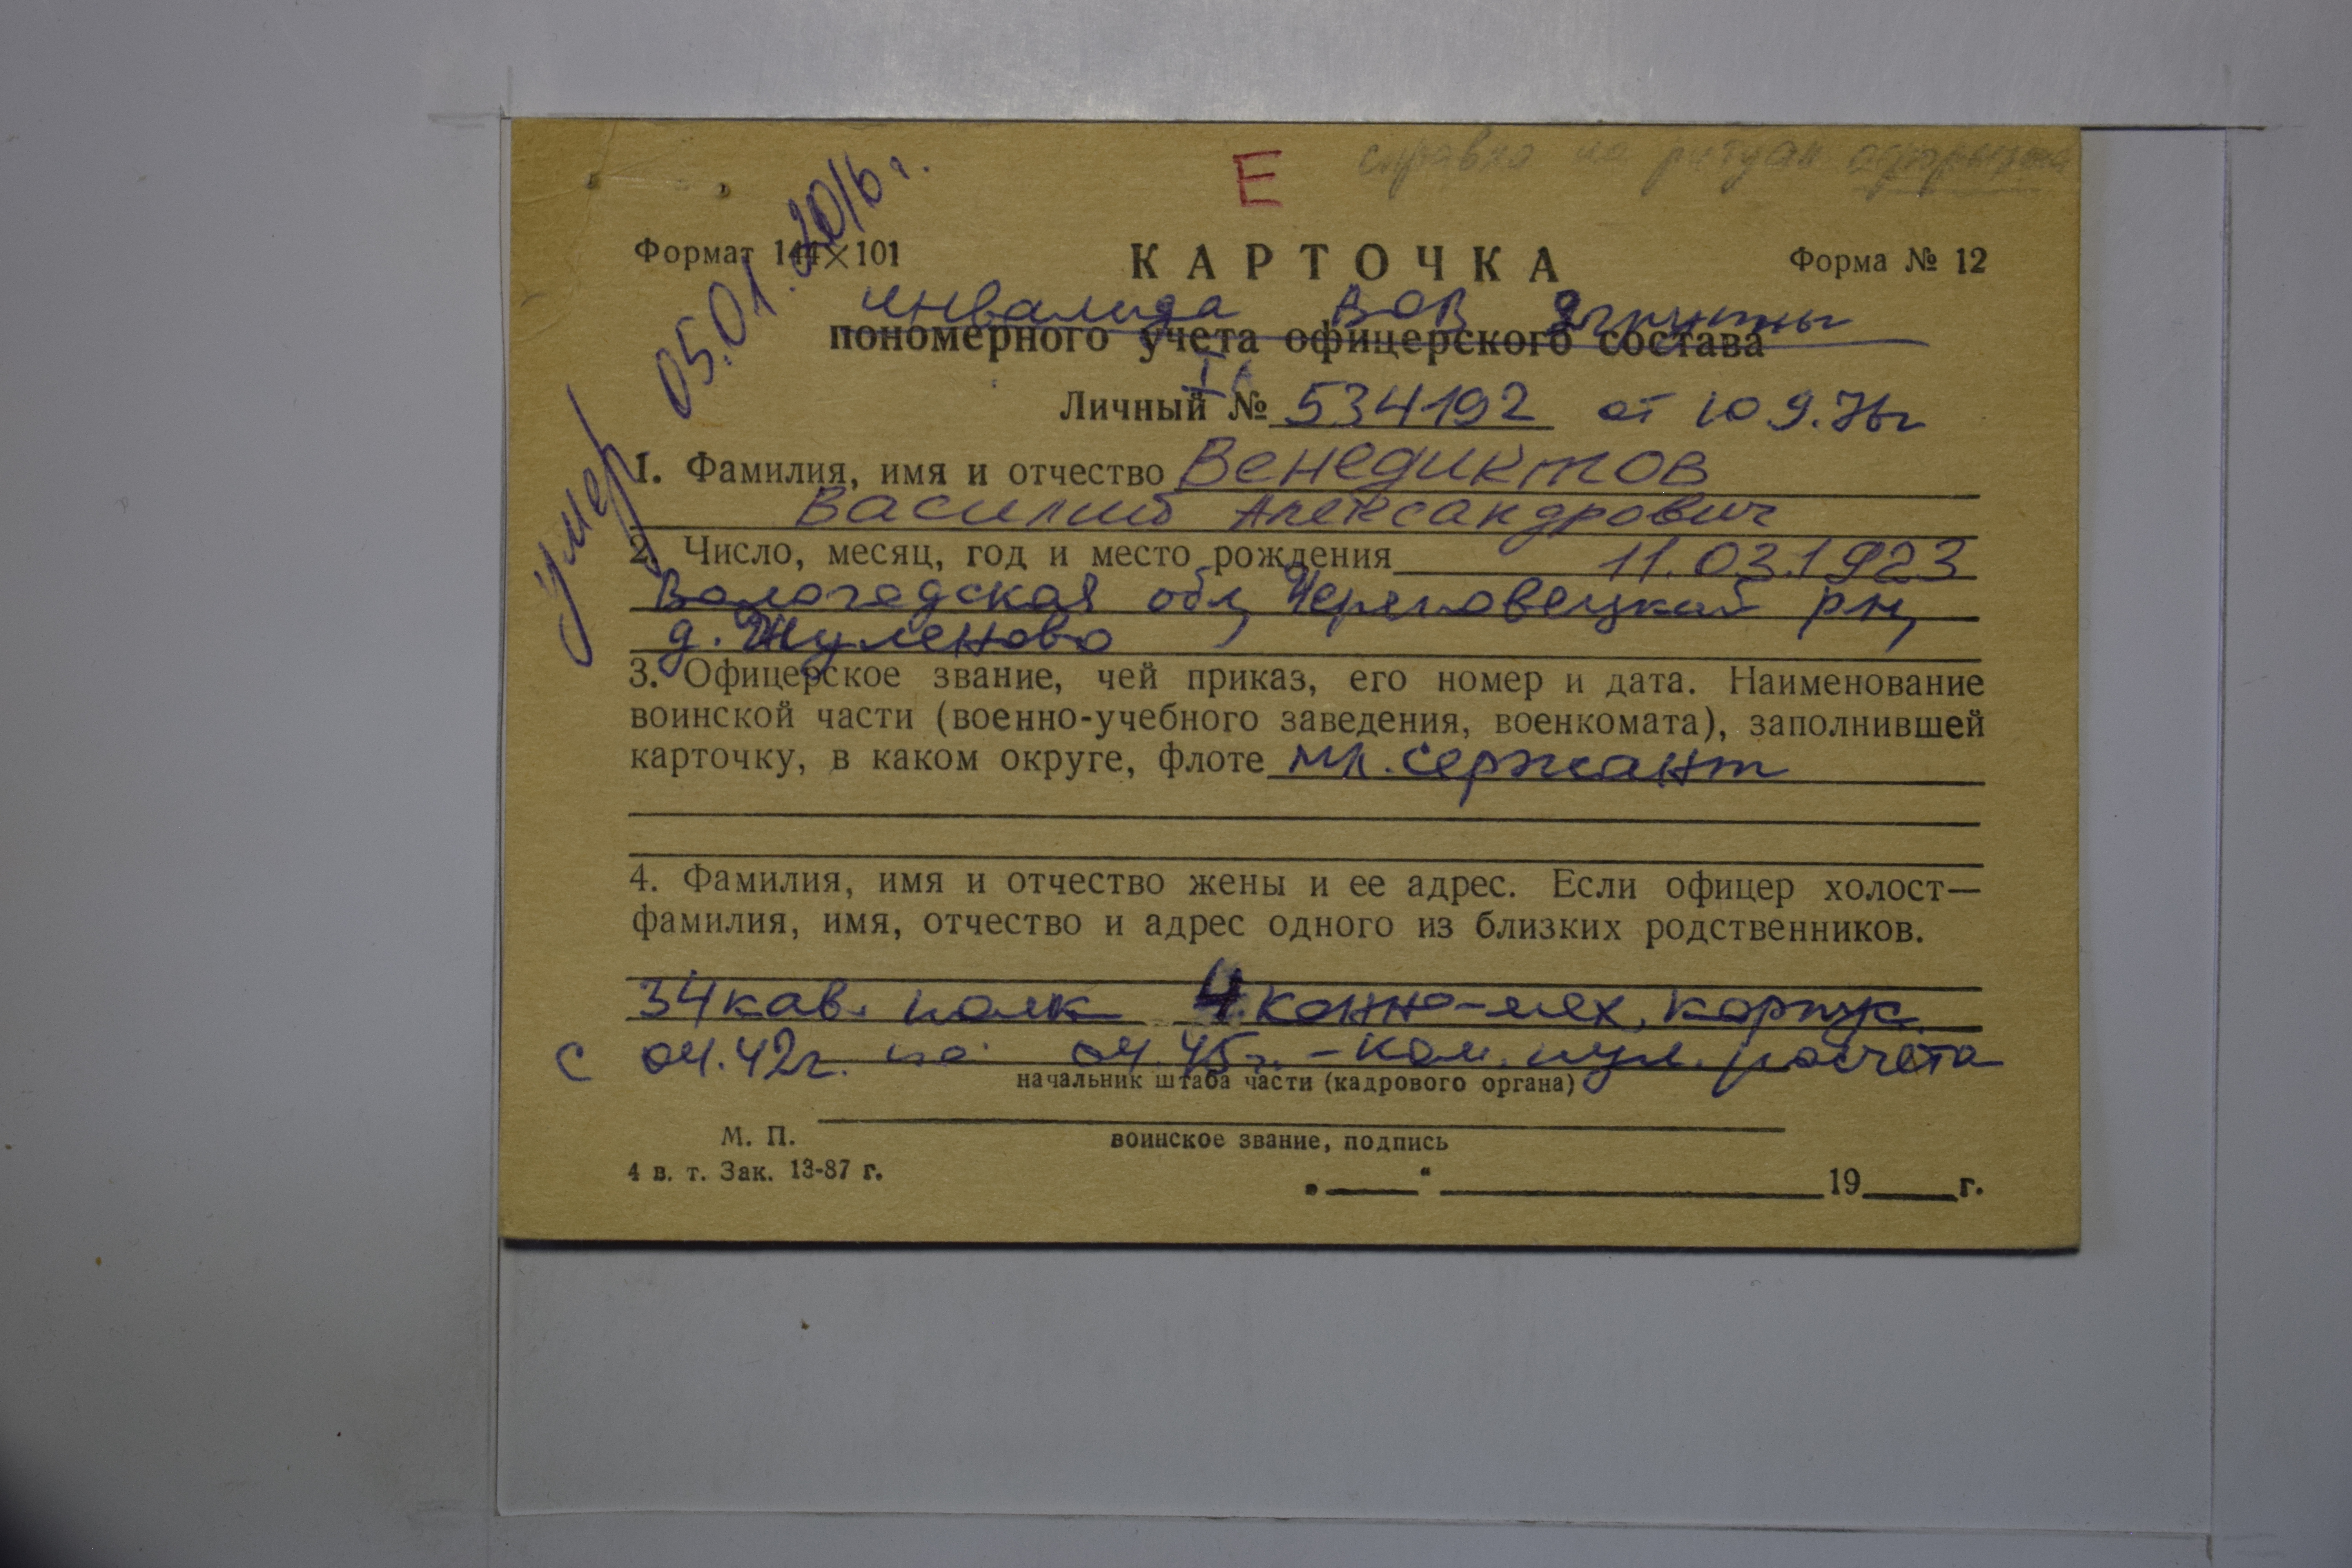 Е справка на ритуал
умер 05.01.2016 г.
Формат 144×101 КАРТОЧКА Форма № 12
инвалида ВОВ 2 группы
пономерного учета офицерского состава
Личный № 534192 от 10.9.76г
1. Фамилия, имя и отчество Венедиктов
Василий Александрович
2. Число, месяц, год и место рождения 11.03.1923
Вологодская обл, Череповецкий рн,
д. Жуленово
3. Офицерское звание, чей приказ, его номер и дата. Наименование
воинской части (военно-учебного заведения, военкомата), заполнившей
карточку, в каком округе, флоте мл. сержант
4. Фамилия, имя и отчество жены и ее адрес. Если офицер холост—
фамилия, имя, отчество и адрес одного из близких родственников.
34 кав. полк 4 конно-мех. корпус
с 04.42г. по 04.45г. – ком. пул. расчета
начальник штаба части (кадрового органа)
М. П. воинское звание, подпись
4 в. т. Зак. 13-87 г.
„ “ 19 г.